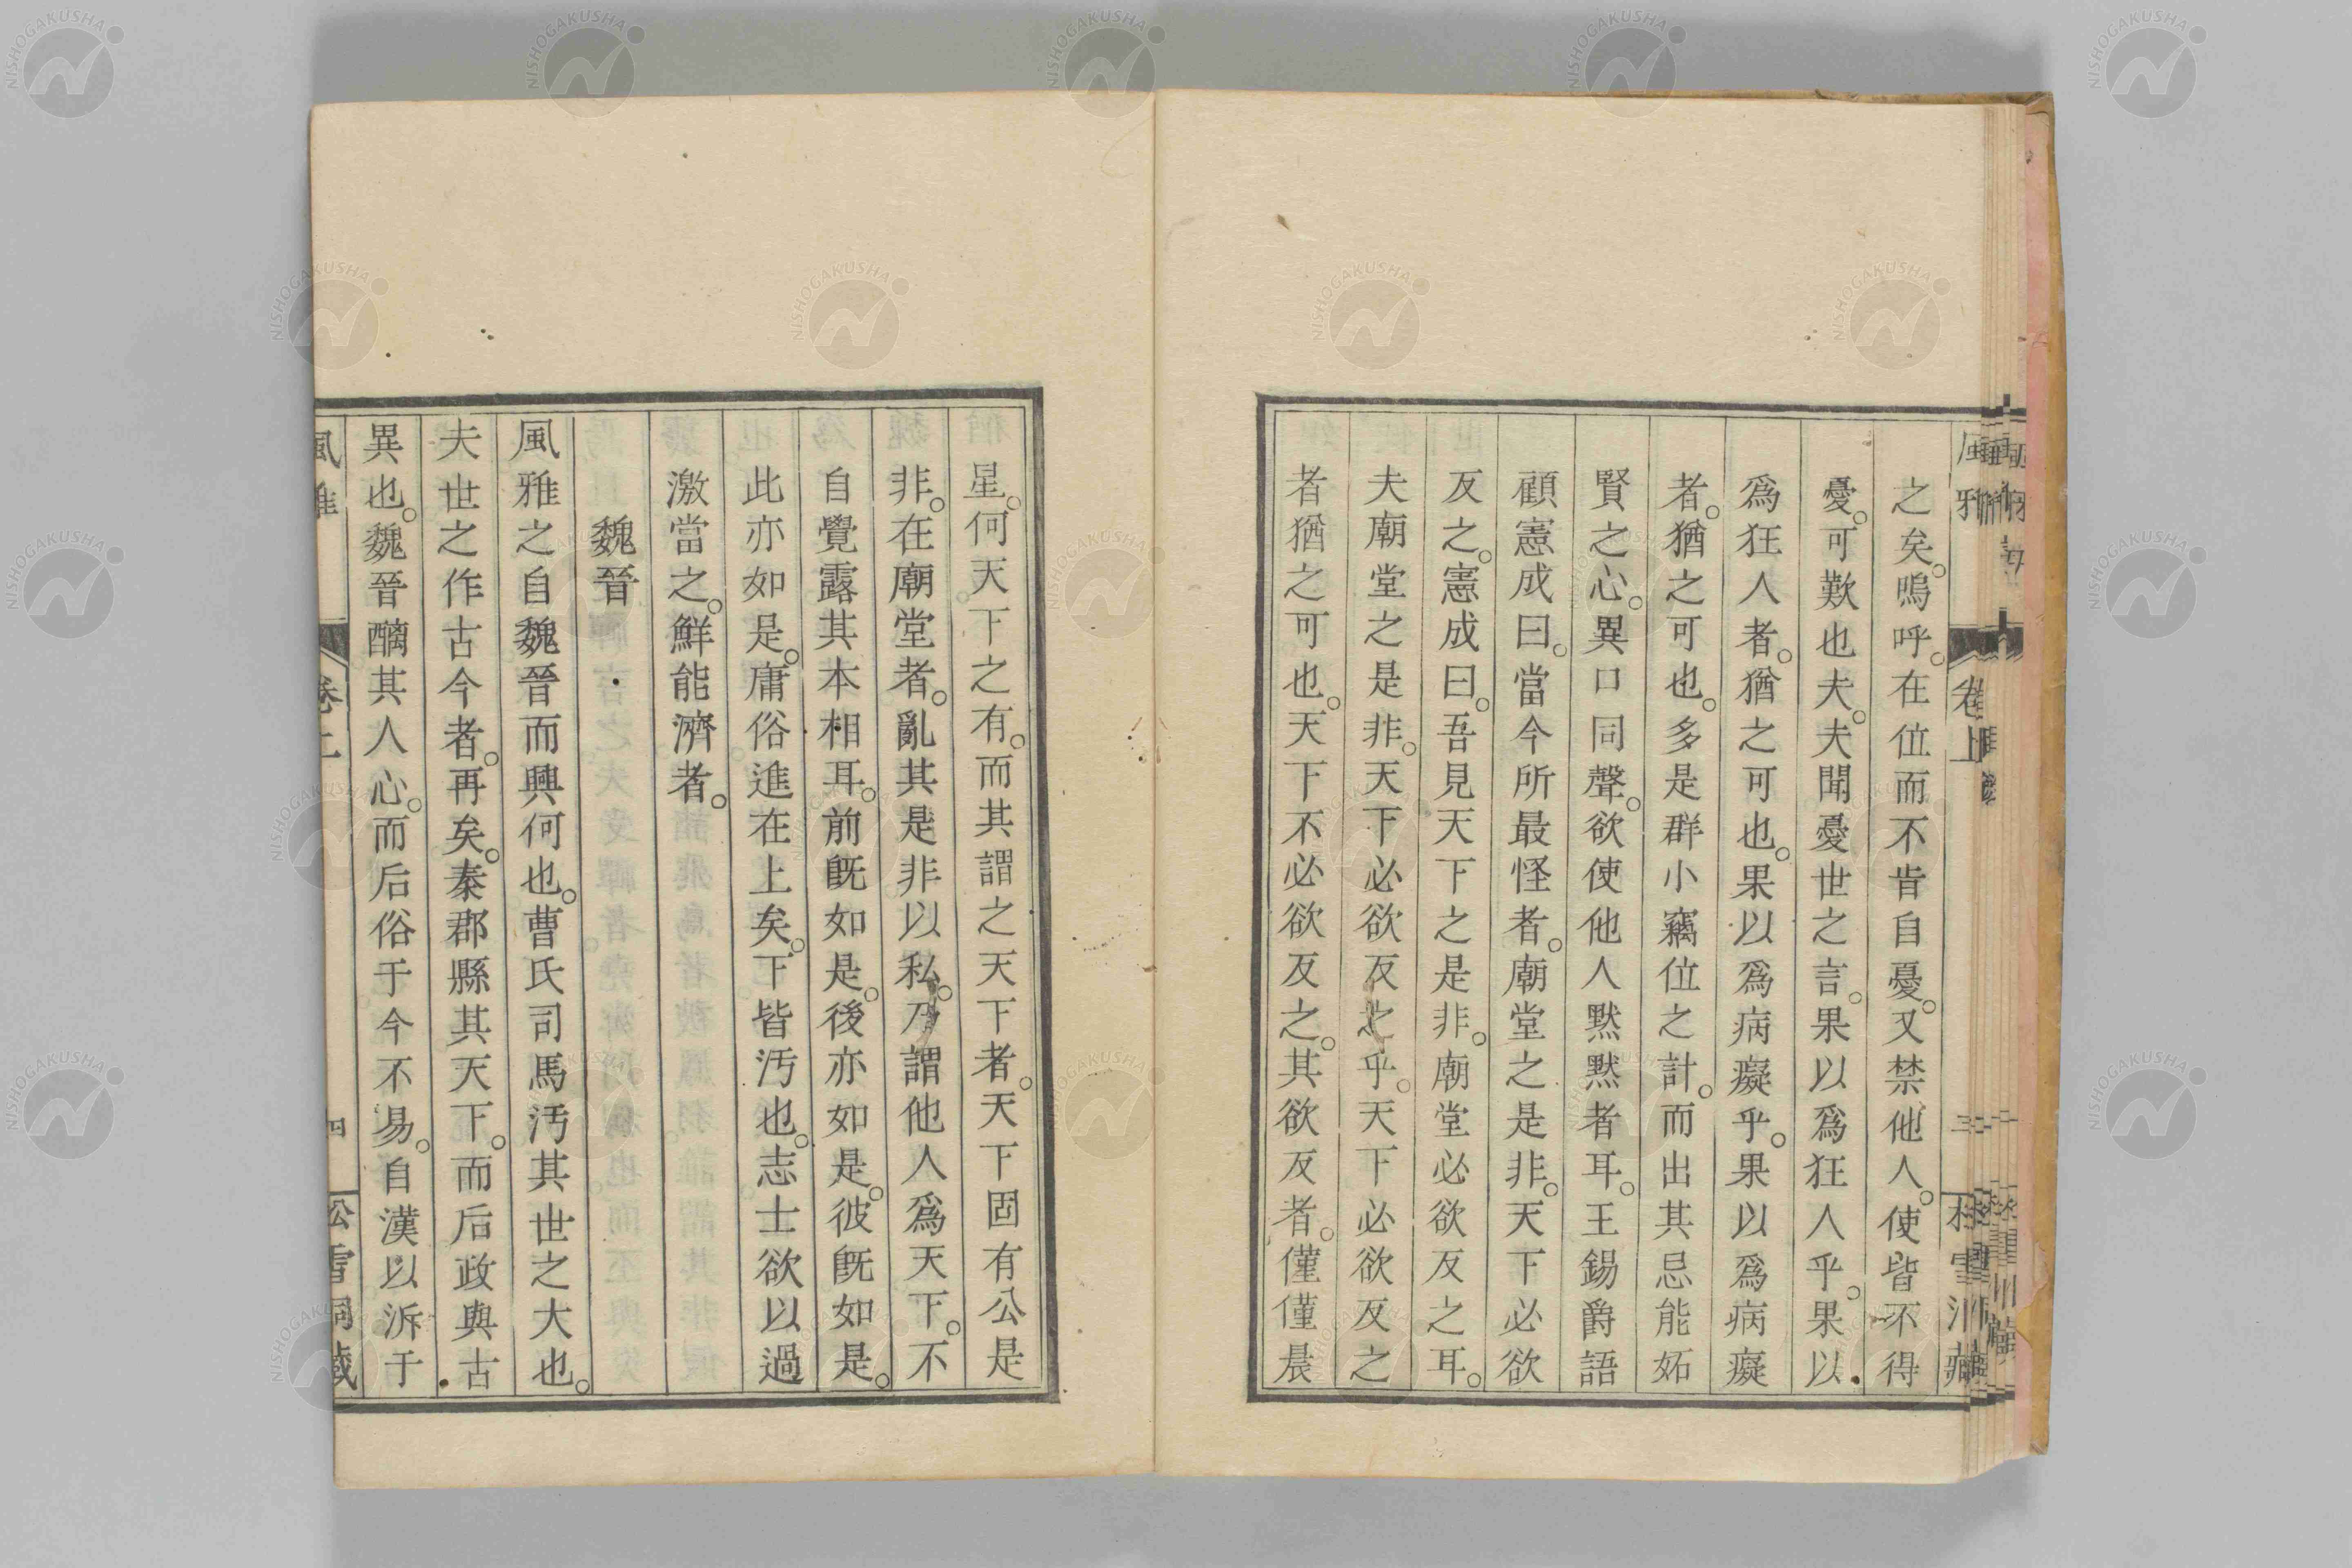 之矣。嗚呼。在位而不肯自憂。又禁他人。使皆不得
憂。可歎也夫。夫聞憂世之言。果以爲狂人乎。果以
爲狂人者。猶之可也。果以爲病癡乎。果以爲病癡
者。猶之可也。多是群小竊位之計。而出其忌能妬
賢之心。異口同聲。欲使他人黙黙者耳。王錫爵語
顧憲成曰。當今所最怪者。廟堂之是非。天下必欲
反之。憲成曰。吾見天下之是非。廟堂必欲反之耳。
夫廟堂之是非。天下必欲反之乎。天下必欲反之
者猶之可也。天下不必欲反之。其欲反者。僅僅晨
星。何天下之有。而其謂之天下者。天下固有公是
非。在廟堂者。亂其是非以私。乃謂他人爲天下。不
自覺露其本相耳。前既如是。後亦如是。彼既如是。
此亦如是。庸俗進在上矣。下皆汚也。志士欲以過
激當之。鮮能濟者。
魏晉
風雅之自魏晉而興何也。曹氏司馬汚其世之大也。
夫世之作古今者。再矣。秦郡縣其天下。而后政與古
異也。魏晉醨其人心。而后俗于今不易。自漢以泝于
風雅 卷上 四 松雪洞藏